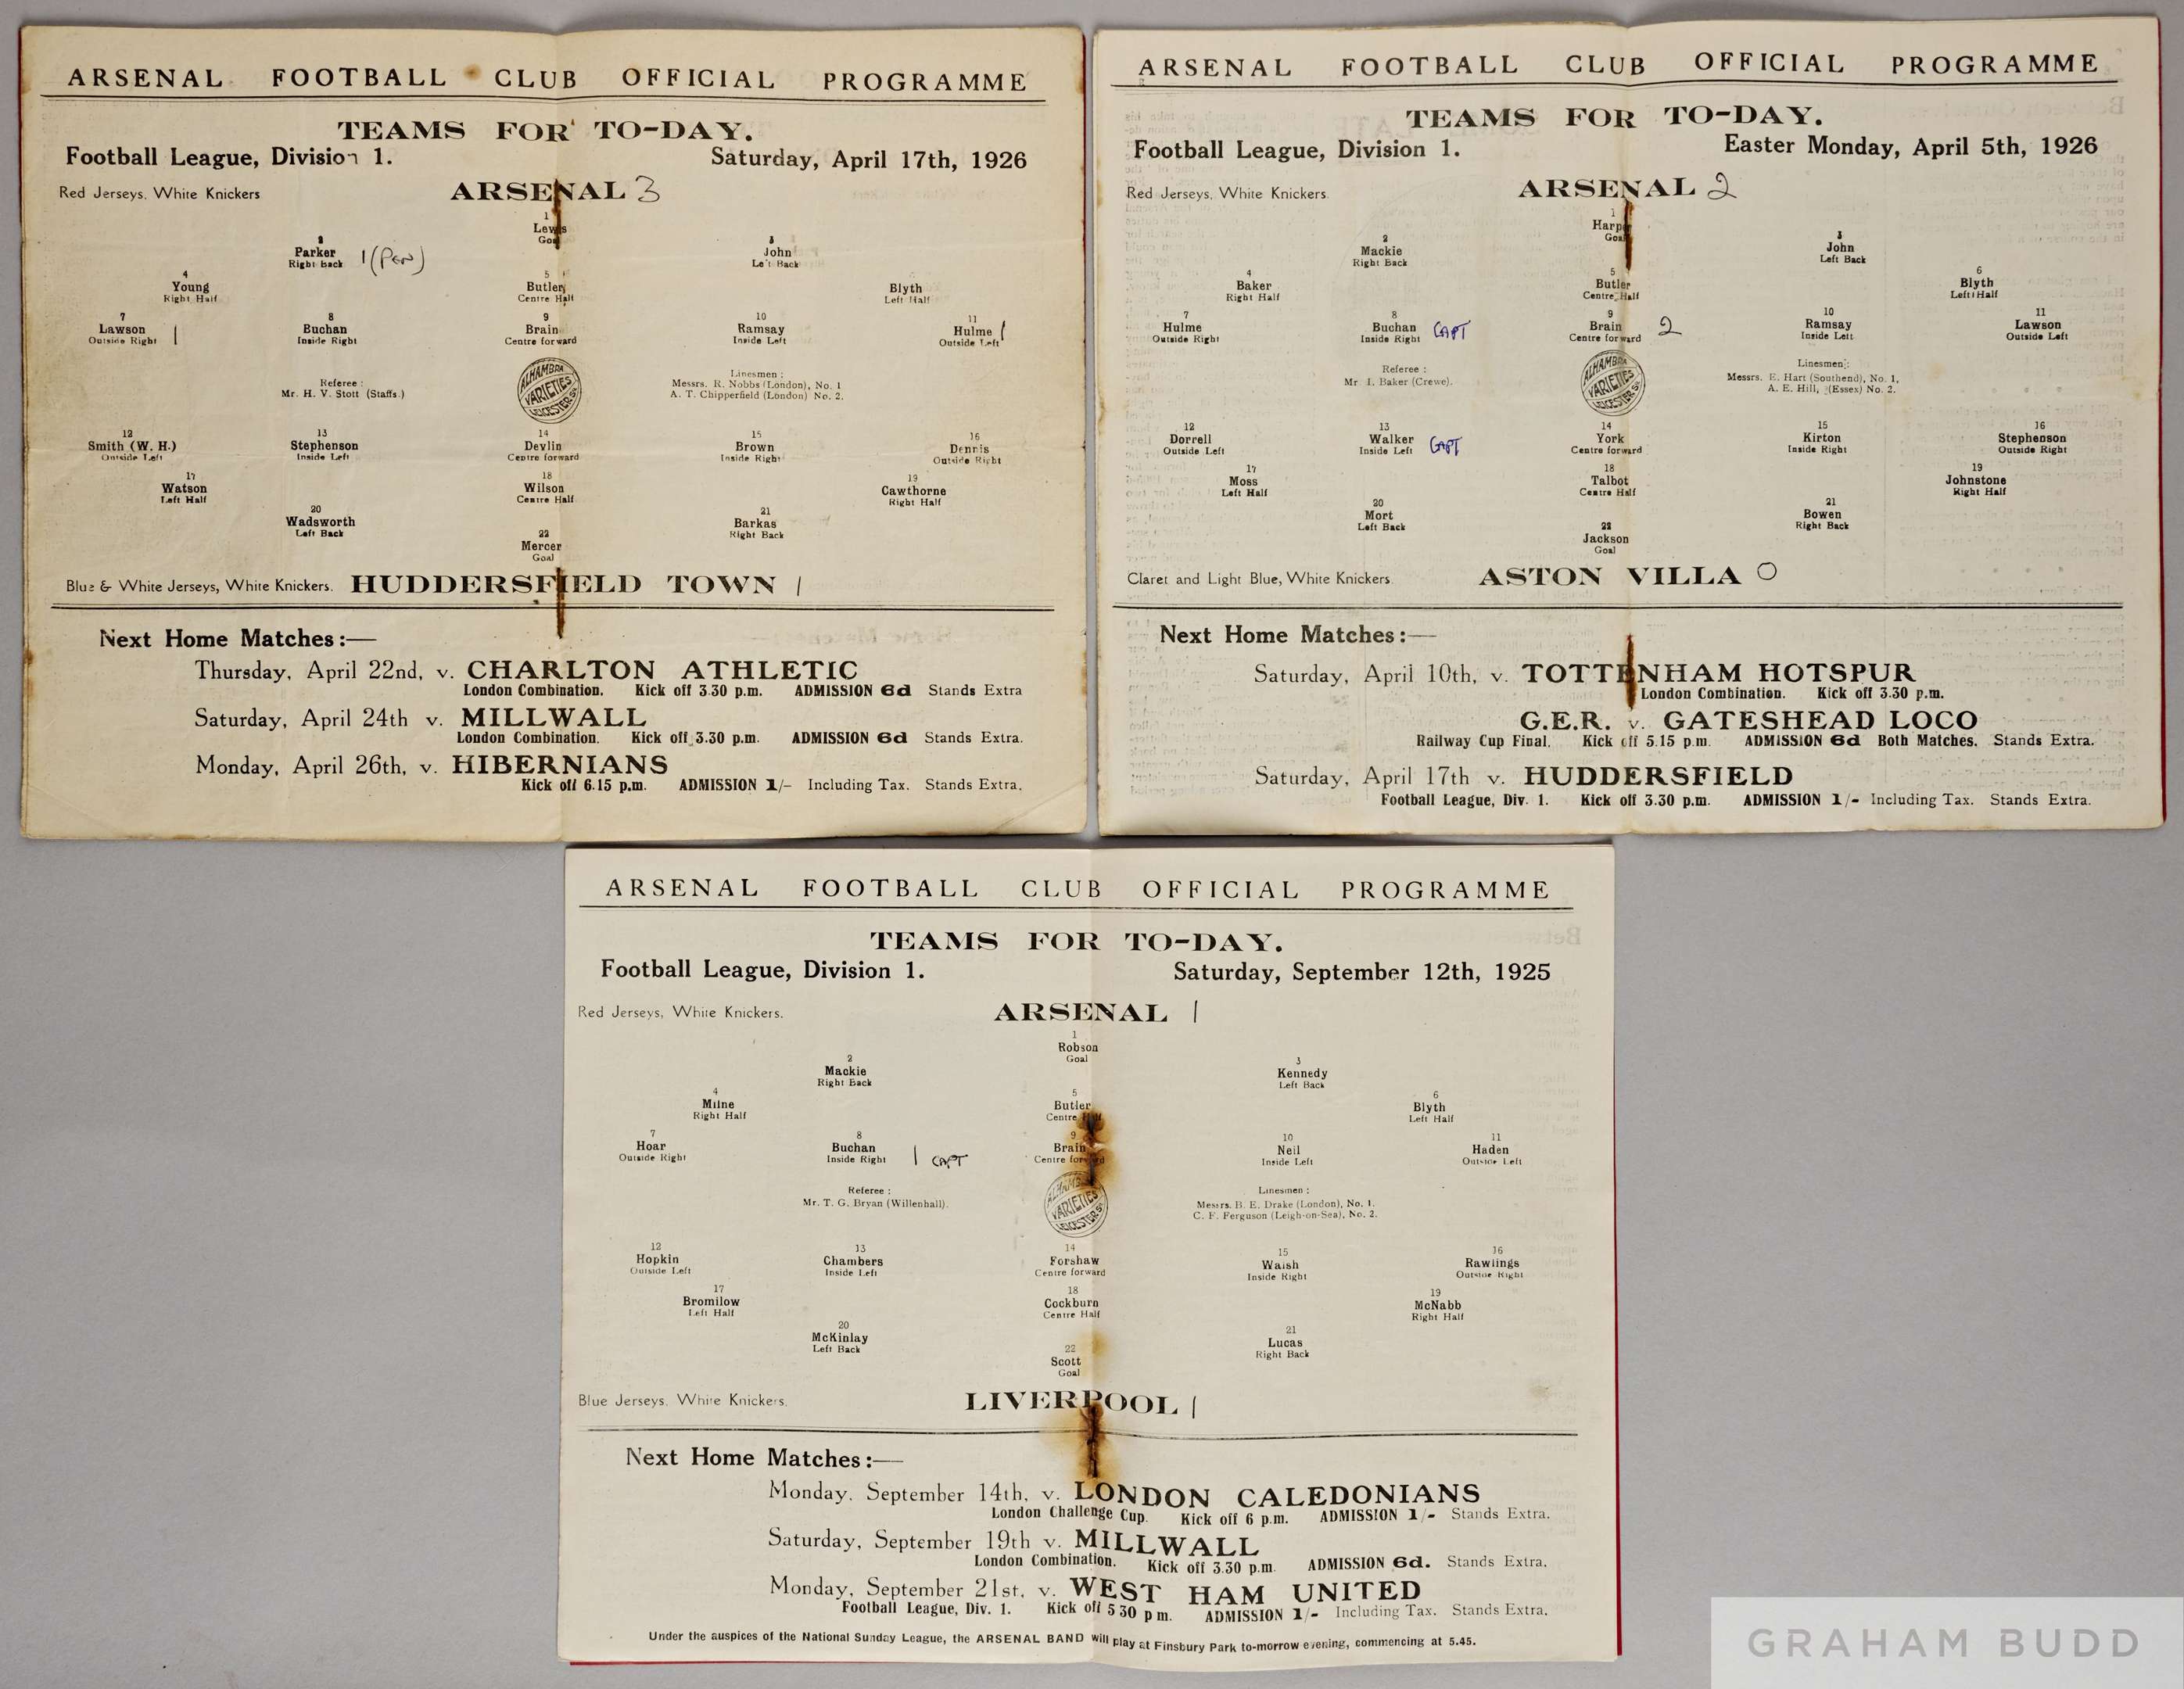 ARSENAL FOOTBALL CLUB OFFICIAL PROGRAMME
TEAMS FOR TO-DAY.
Football League, Division 1. Saturday, April 17th, 1926
Red Jerseys, White Knickers ARSENAL 3
1
Lewis
Goal
2 3
Parker 1 (Pen) John
Right Back Left Back
4 5 6
Young Butler Blyth
Right Half Centre Half Left Half
7 8 9 10 11
Lawson 1 Buchan Brain Ramsay Hulme 1
Outside Right Inside Right Centre forward Inside Left Outside Left
Referee : Linesmen :
Mr. H. V. Stott (Staffs.) Messrs. R. Nobbs (London), No. 1
A. T. Chipperfield (London) No. 2.
ALHAMBRA
VARIETIES
LEICESTER SQ
12 13 14 15 16
Smith (W. H.) Stephenson Devlin Brown Dennis
Outside Left Inside Left Centre forward Inside Right Outside Right
17 18 19
Watson Wilson Cawthorne
Left Half Centre Half Right Half
20 21
Wadsworth Barkas
Left Back Right Back
22
Mercer
Goal
Blue & White Jerseys, White Knickers. HUDDERSFIELD TOWN 1
Next Home Matches :—
Thursday, April 22nd, v. CHARLTON ATHLETIC
London Combination. Kick off 3.30 p.m. ADMISSION 6d Stands Extra
Saturday, April 24th v. MILLWALL
London Combination. Kick off 3.30 p.m. ADMISSION 6d Stands Extra.
Monday, April 26th, v. HIBERNIANS
Kick off 6.15 p.m. ADMISSION 1/- Including Tax. Stands Extra.
ARSENAL FOOTBALL CLUB OFFICIAL PROGRAMME
TEAMS FOR TO-DAY.
Football League, Division 1. Easter Monday, April 5th, 1926
Red Jerseys, White Knickers. ARSENAL 2
1
Harper
Goal
2 3
Mackie John
Right Back Left Back
4 5 6
Baker Butler Blyth
Right Half Centre Half Left Half
7 8 9 10 11
Hulme Buchan CAPT Brain 2 Ramsay Lawson
Outside Right Inside Right Centre forward Inside Left Outside Left
Referee : Linesmen :
Mr. I. Baker (Crewe). Messrs. E. Hart (Southend), No. 1,
A. E. Hill, (Essex) No. 2.
ALHAMBRA
VARIETIES
LEICESTER SQ
12 13 14 15 16
Dorrell Walker CAPT York Kirton Stephenson
Outside Left Inside Left Centre forward Inside Right Outside Right
17 18 19
Moss Talbot Johnstone
Left Half Centre Half Right Half
20 21
Mort Bowen
Left Back Right Back
22
Jackson
Goal
Claret and Light Blue, White Knickers. ASTON VILLA 0
Next Home Matches :—
Saturday, April 10th, v. TOTTENHAM HOTSPUR
London Combination. Kick off 3.30 p.m.
G.E.R. v. GATESHEAD LOCO
Railway Cup Final. Kick off 5.15 p.m. ADMISSION 6d Both Matches. Stands Extra.
Saturday, April 17th v. HUDDERSFIELD
Football League, Div. 1. Kick off 3.30 p.m. ADMISSION 1/- Including Tax. Stands Extra.
ARSENAL FOOTBALL CLUB OFFICIAL PROGRAMME
TEAMS FOR TO-DAY.
Football League, Division 1. Saturday, September 12th, 1925
Red Jerseys, White Knickers. ARSENAL 1
1
Robson
Goal
2 3
Mackie Kennedy
Right Back Left Back
4 5 6
Milne Butler Blyth
Right Half Centre Half Left Half
7 8 9 10 11
Hoar Buchan 1 CAPT Brain Neil Haden
Outside Right Inside Right Centre forward Inside Left Outside Left
Referee : Linesmen :
Mr. T. G. Bryan (Willenhall). Messrs. B. E. Drake (London), No. 1.
C. F. Ferguson (Leigh-on-Sea), No. 2.
ALHAMBRA
VARIETIES
LEICESTER SQ
12 13 14 15 16
Hopkin Chambers Forshaw Walsh Rawlings
Outside Left Inside Left Centre forward Inside Right Outside Right
17 18 19
Bromilow Cockburn McNabb
Left Half Centre Half Right Half
20 21
McKinlay Lucas
Left Back Right Back
22
Scott
Goal
Blue Jerseys, White Knickers. LIVERPOOL 1
Next Home Matches :—
Monday, September 14th, v. LONDON CALEDONIANS
London Challenge Cup. Kick off 6 p.m. ADMISSION 1/- Stands Extra.
Saturday, September 19th v. MILLWALL
London Combination. Kick off 3.30 p.m. ADMISSION 6d. Stands Extra.
Monday, September 21st, v. WEST HAM UNITED
Football League, Div. 1. Kick off 5 30 p m. ADMISSION 1/- Including Tax. Stands Extra.
Under the auspices of the National Sunday League, the ARSENAL BAND will play at Finsbury Park to-morrow evening, commencing at 5.45.
GRAHAM BUDD